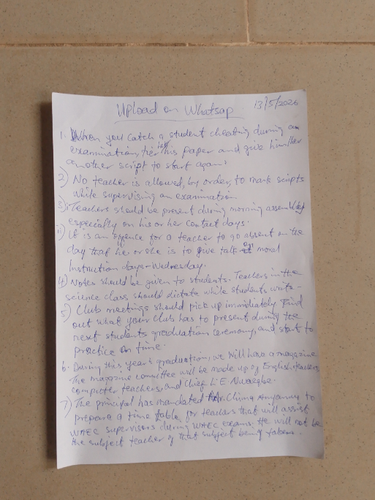 Upload on Whatsap 13/5/2026
1. When you catch a student cheating during an
examination, tear his paper and give him/her
another script to start again.
2) No teacher is allowed, by order, to mark scripts
while supervising an examination.
3. Teachers should be present during morning assembly
especially on his or her contact days.
It is an offence for a teacher to go absent on the
day that he or she is to give talk or moral
Instruction days - Wednesday.
4) Notes should be given to students. Teachers in the
science class should dictate while students write.
5) Club meetings should pick up immediately. Find
out what your club has to present during the
next students graduation ceremony, and start to
practice on time.
6. During this year's graduation, we will have a magazine.
The magazine committee will be made up of English teachers,
computer teachers, and Chief L.E.
7) The principal has mandated to
prepare a time table for teachers that will assist
WAEC supervisors during WAEC exams. He will not be
the subject teacher of that subject being taken.